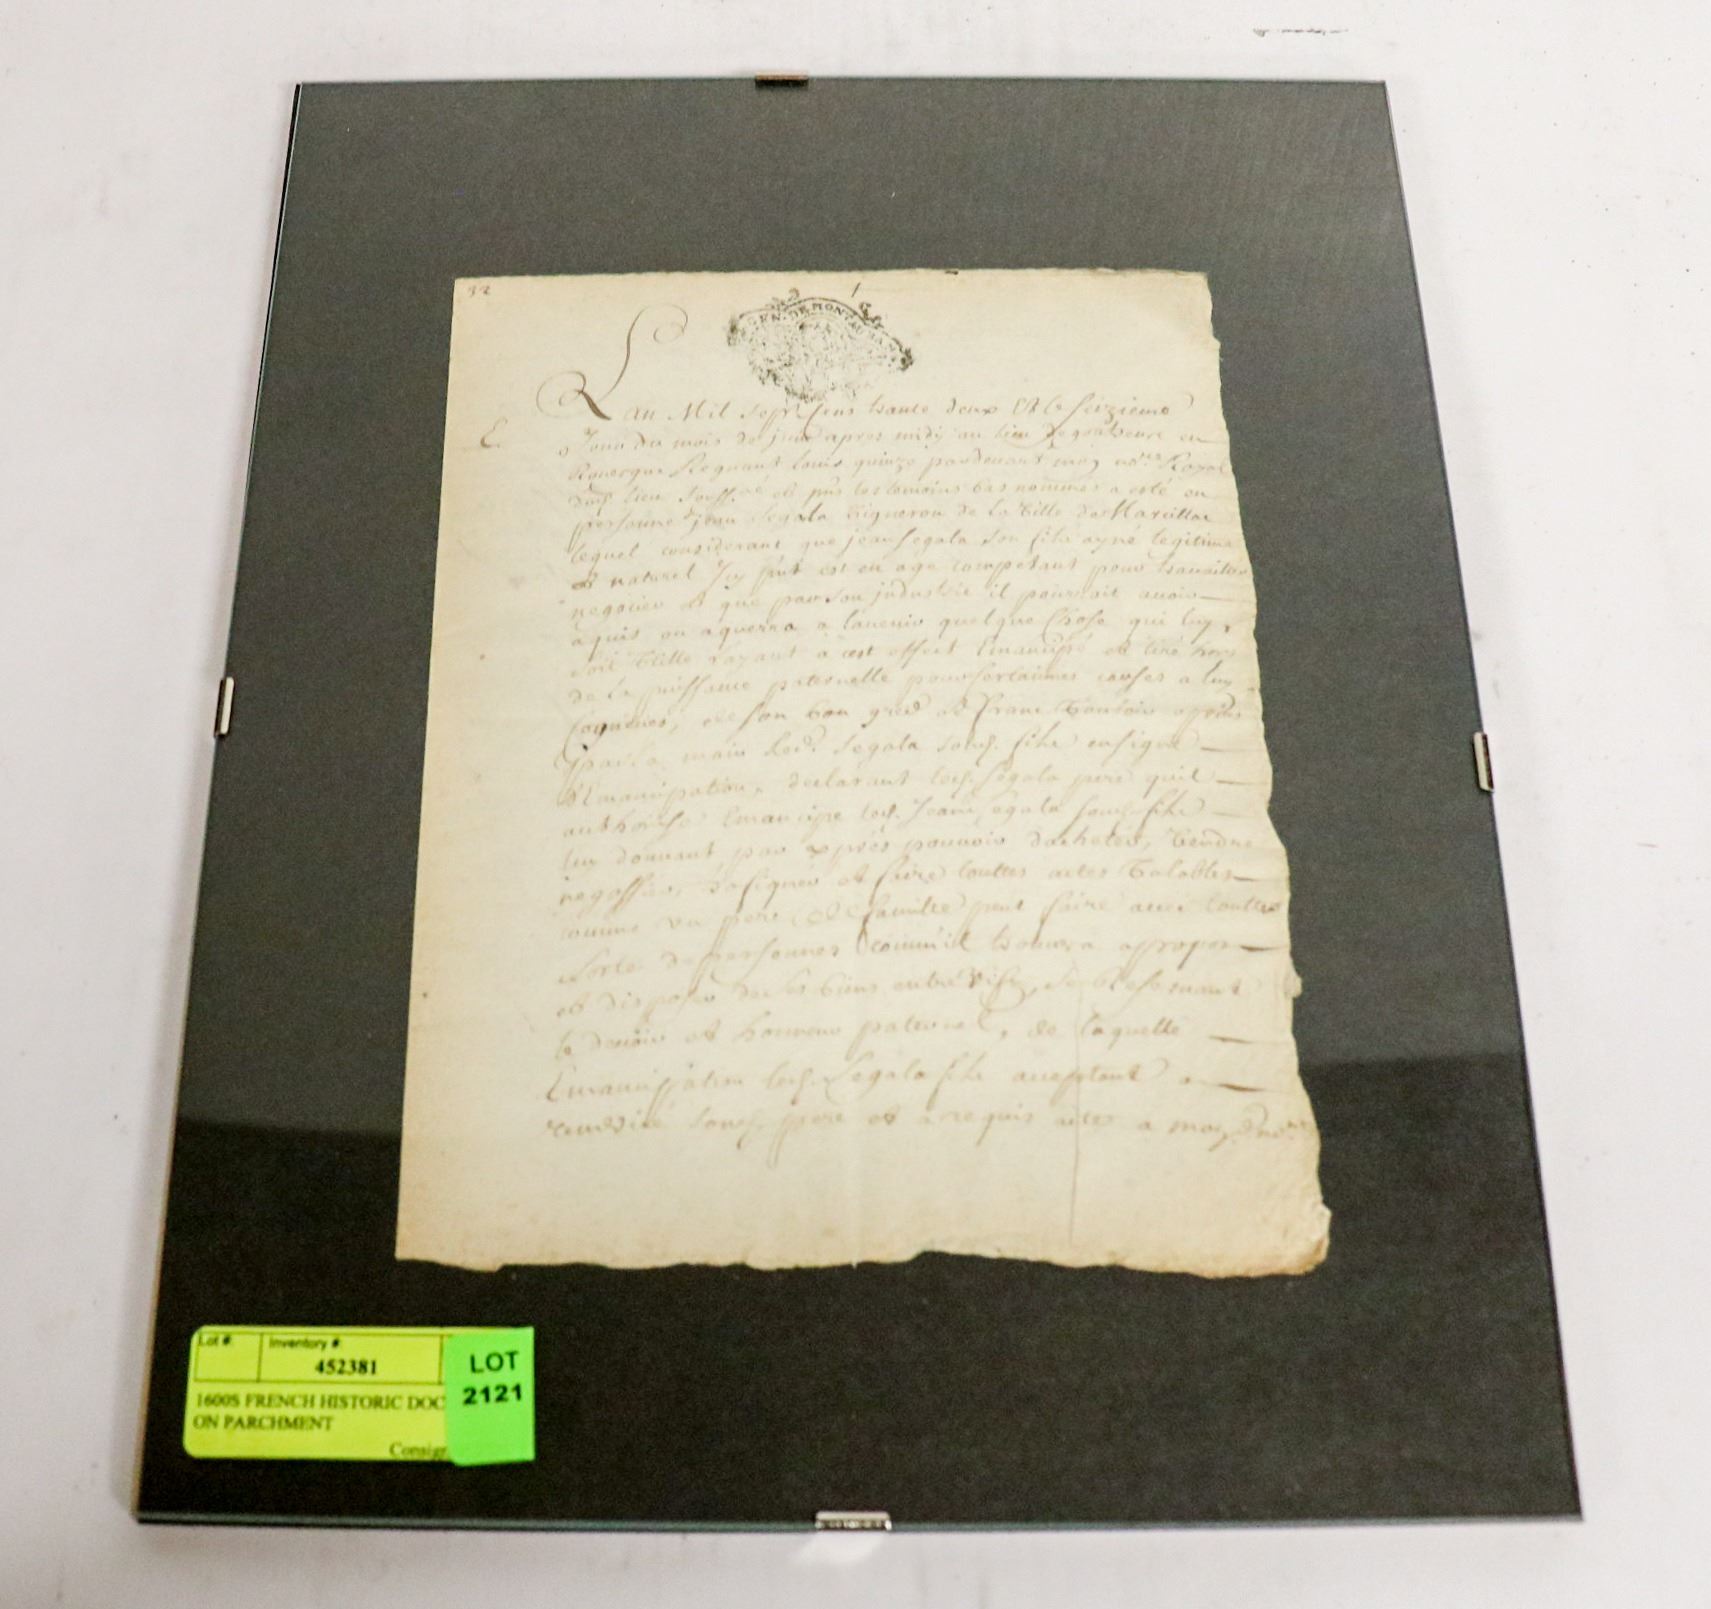 32
GEN. DE MONTAUBAN
Lan Mil sept cens trante deux & le seizieme
E.
Jour du mois de juin apres midy au lieu de en
Rouergue Regnant louis quinze pardevant moy no.re Royal
dud. lieu souss.né et pns les temoins bas nommés a esté en
personne jean Segala vigneron de la ville de Marcillac
lequel considerant que jean Segala son fils ayné legitime
& naturel Icy pnt est en age competant pour travailler
negocier & que par son industrie il pourroit avoir
aquis ou aquerra a lavenir quelque chose qui luy
soit utille layant a cest effect Emancipé et tiré hors
de la puissance paternelle pour certaines causes a luy
cogneues, de son bon gred & franc vouloir apres
par la main Led. Segala sond. fils en signe
d'Emancipation, declarant led. Segala pere quil
authorise Emancipe led. Jean Segala sond. fils
luy donnant par exprés pouvoir dacheter, vendre
negossier, et faire touttes actes valables
comme un pere de famille peut faire avec toutte
sorte de personnes comm'il trouvera appropos
et disposer de ses biens entre vifs, se reservant
le devoir et honneur paternel, de laquelle
Emancipation led. Segala fils acceptant a
remersié sond. pere et a requis actes a moy d. no.re
Lot #: Inventory #:
452381
LOT
2121
1600S FRENCH HISTORIC DOC
ON PARCHMENT
Consig